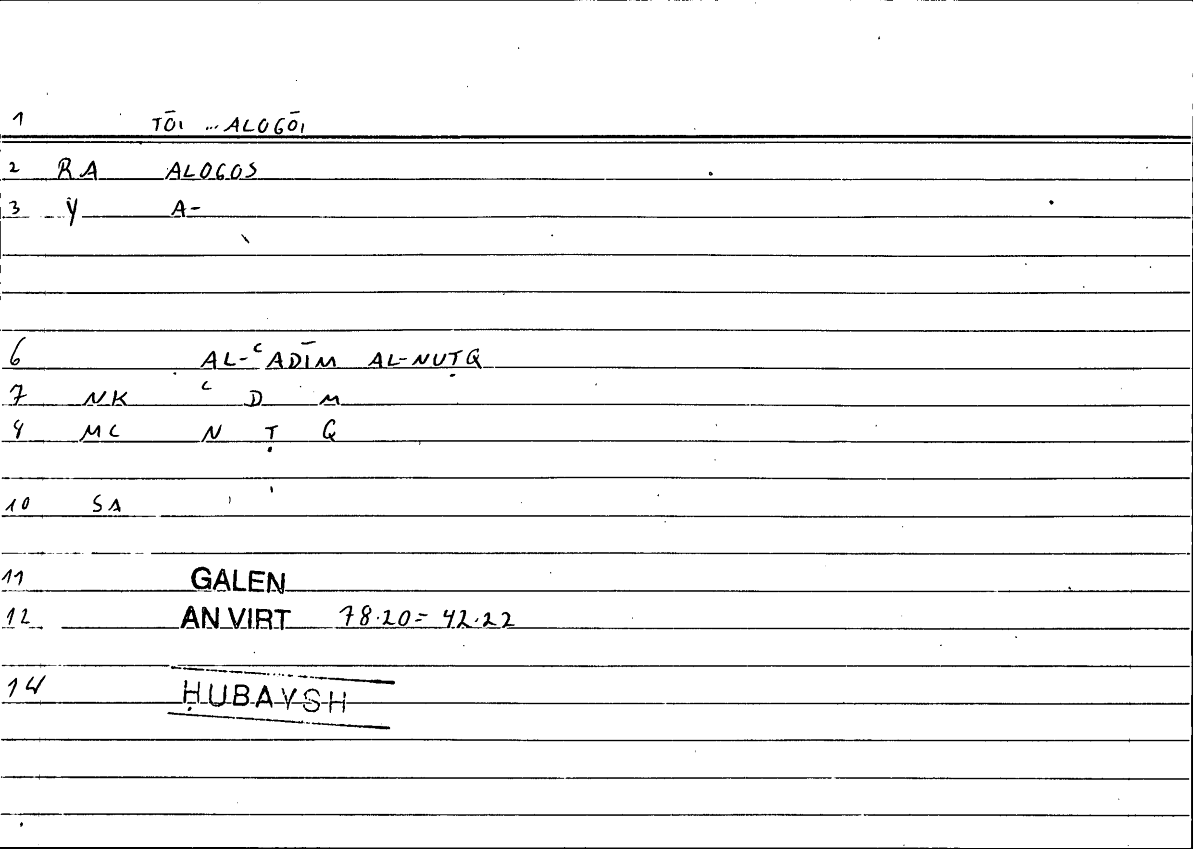 1 TŌI ... ALOGŌI
2 RA ALOGOS
3 Y A-
6 AL-ʿADĪM AL-NUṬQ
7 NK ʿ D M
8 MC N Ṭ Q
10 SA
11 GALEN
12 AN VIRT 78.20 = 42.22
14 ḤUBAYSH